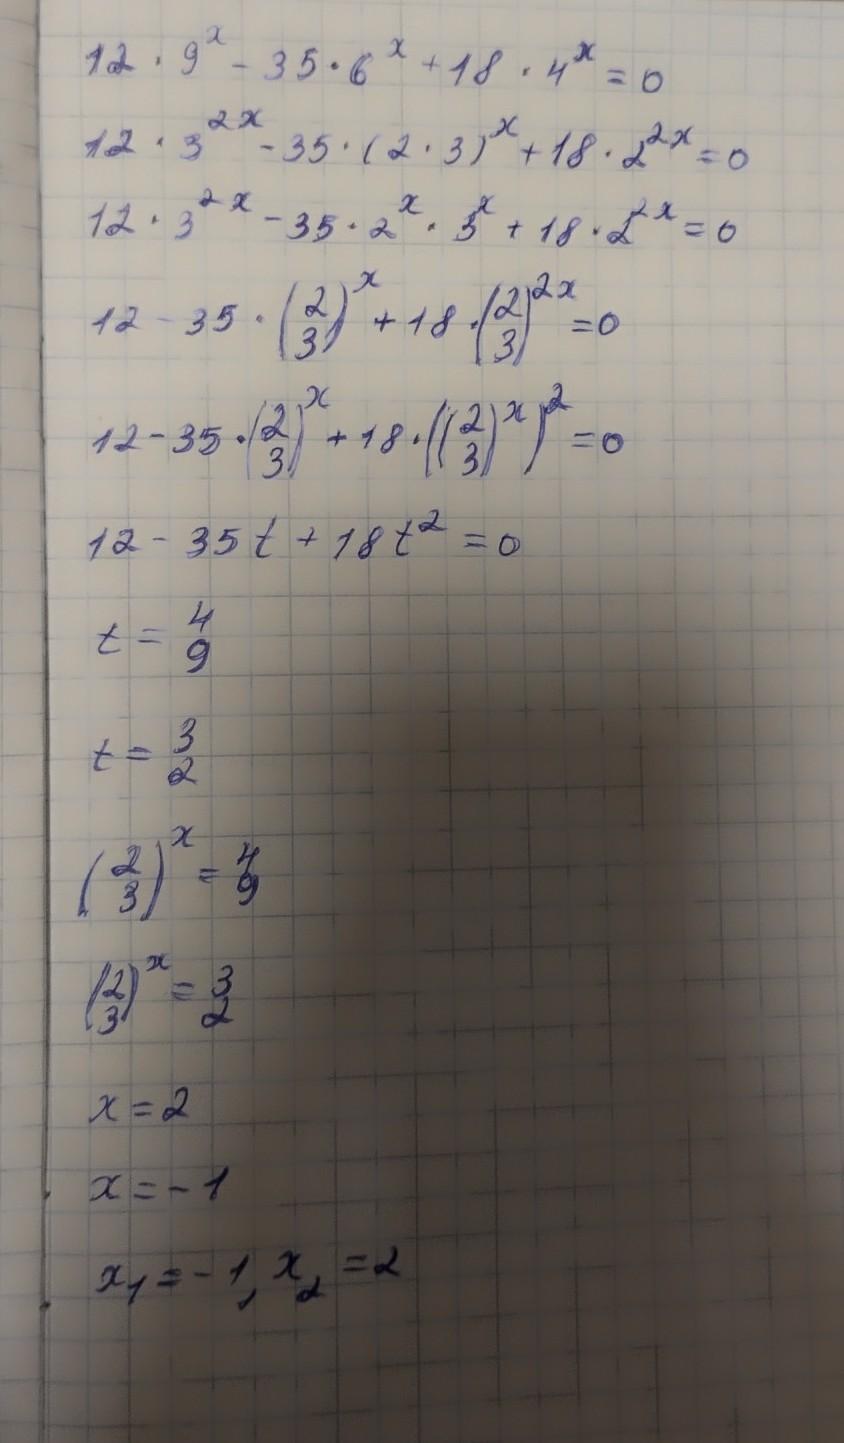 12 · 9^x - 35 · 6^x + 18 · 4^x = 0
12 · 3^2x - 35 · (2 · 3)^x + 18 · 2^2x = 0
12 · 3^2x - 35 · 2^x · 3^x + 18 · 2^2x = 0
12 - 35 · (2/3)^x + 18 · (2/3)^2x = 0
12 - 35 · (2/3)^x + 18 · ((2/3)^x)^2 = 0
12 - 35t + 18t^2 = 0
t = 4/9
t = 3/2
(2/3)^x = 4/9
(2/3)^x = 3/2
x = 2
x = -1
x₁ = -1, x₂ = 2